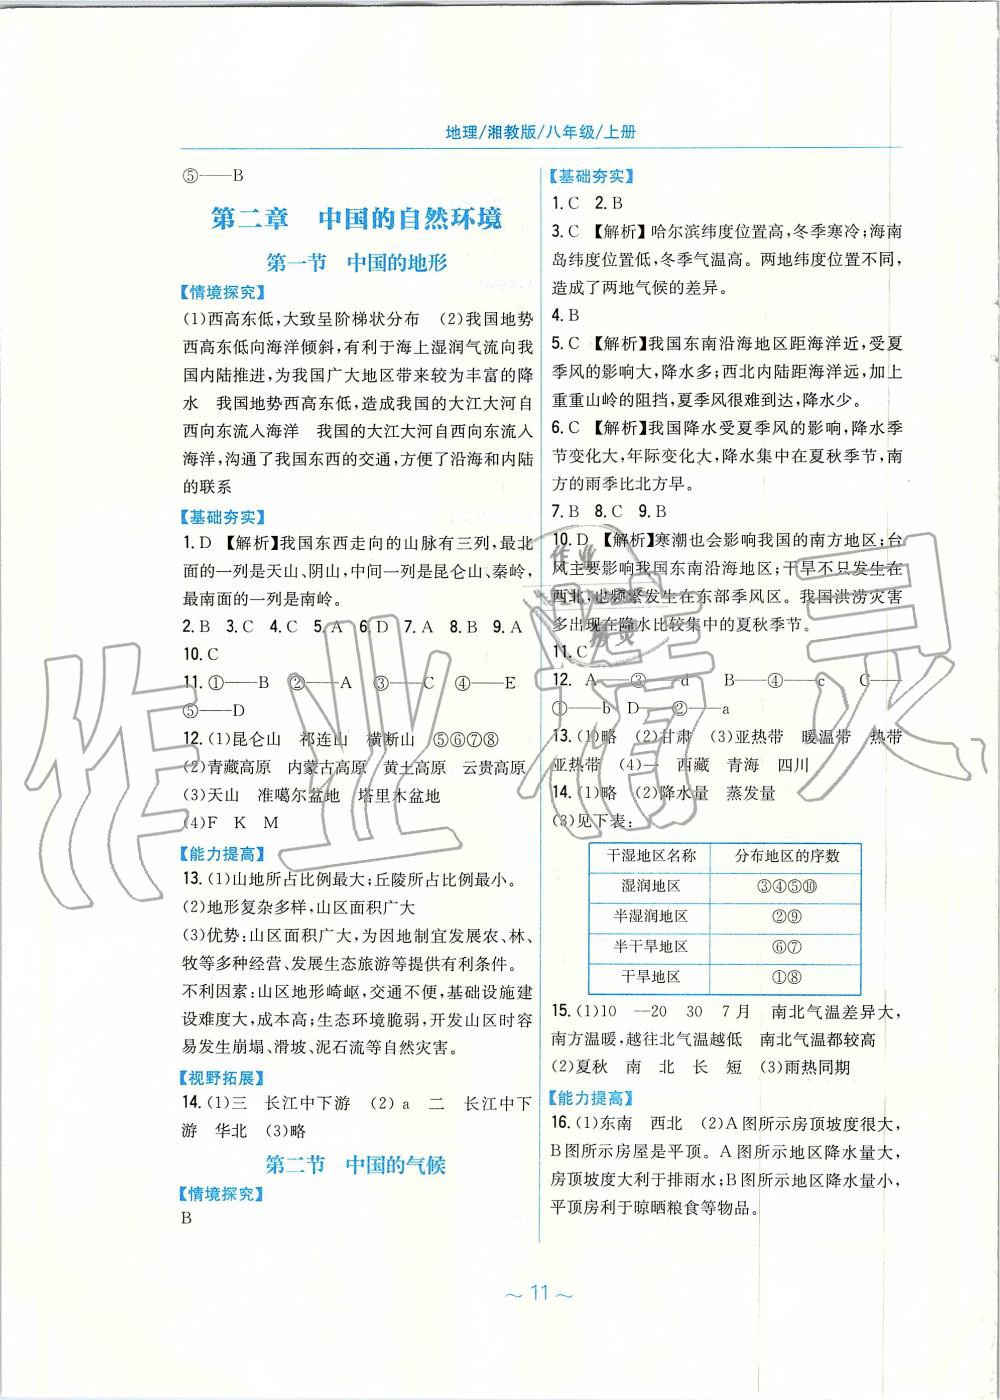 地理/湘教版/八年级/上册
⑤——B
第二章 中国的自然环境
第一节 中国的地形
【情境探究】
(1)西高东低,大致呈阶梯状分布 (2)我国地势
西高东低向海洋倾斜,有利于海上湿润气流向我
国内陆推进,为我国广大地区带来较为丰富的降
水 我国地势西高东低,造成我国的大江大河自
西向东流入海洋 我国的大江大河自西向东流入
海洋,沟通了我国东西的交通,方便了沿海和内陆
的联系
【基础夯实】
1. D 【解析】我国东西走向的山脉有三列,最北
面的一列是天山、阴山,中间一列是昆仑山、秦岭,
最南面的一列是南岭。
2. B 3. C 4. C 5. A 6. D 7. A 8. B 9. A
10. C
11. ①——B ②——A ③——C ④——E
⑤——D
12. (1)昆仑山 祁连山 横断山 ⑤⑥⑦⑧
(2)青藏高原 内蒙古高原 黄土高原 云贵高原
(3)天山 准噶尔盆地 塔里木盆地
(4)F K M
【能力提高】
13. (1)山地所占比例最大;丘陵所占比例最小。
(2)地形复杂多样,山区面积广大
(3)优势:山区面积广大,为因地制宜发展农、林、
牧等多种经营、发展生态旅游等提供有利条件。
不利因素:山区地形崎岖,交通不便,基础设施建
设难度大,成本高;生态环境脆弱,开发山区时容
易发生崩塌、滑坡、泥石流等自然灾害。
【视野拓展】
14. (1)三 长江中下游 (2)a 二 长江中下
游 华北 (3)略
第二节 中国的气候
【情境探究】
B
【基础夯实】
1. C 2. B
3. C 【解析】哈尔滨纬度位置高,冬季寒冷;海南
岛纬度位置低,冬季气温高。两地纬度位置不同,
造成了两地气候的差异。
4. B
5. C 【解析】我国东南沿海地区距海洋近,受夏
季风的影响大,降水多;西北内陆距海洋远,加上
重重山岭的阻挡,夏季风很难到达,降水少。
6. C 【解析】我国降水受夏季风的影响,降水季
节变化大,年际变化大,降水集中在夏秋季节,南
方的雨季比北方早。
7. B 8. C 9. B
10. D 【解析】寒潮也会影响我国的南方地区;台
风主要影响我国东南沿海地区;干旱不只发生在
西北,也频繁发生在东部季风区。我国洪涝灾害
多出现在降水比较集中的夏秋季节。
11. C
12. A——③——d B——④——c C——
①——b D——②——a
13. (1)略 (2)甘肃 (3)亚热带 暖温带 热带
亚热带 (4)一 西藏 青海 四川
14. (1)略 (2)降水量 蒸发量
(3)见下表:
干湿地区名称 分布地区的序数
湿润地区 ③④⑤⑩
半湿润地区 ②⑨
半干旱地区 ⑥⑦
干旱地区 ①⑧
15. (1)10 —20 30 7月 南北气温差异大,
南方温暖,越往北气温越低 南北气温都较高
(2)夏秋 南 北 长 短 (3)雨热同期
【能力提高】
16. (1)东南 西北 (2)A图所示房顶坡度很大,
B图所示房屋是平顶。A图所示地区降水量大,
房顶坡度大利于排雨水;B图所示地区降水量小,
平顶房利于晾晒粮食等物品。
~ 11 ~
作业精灵
作业
精灵